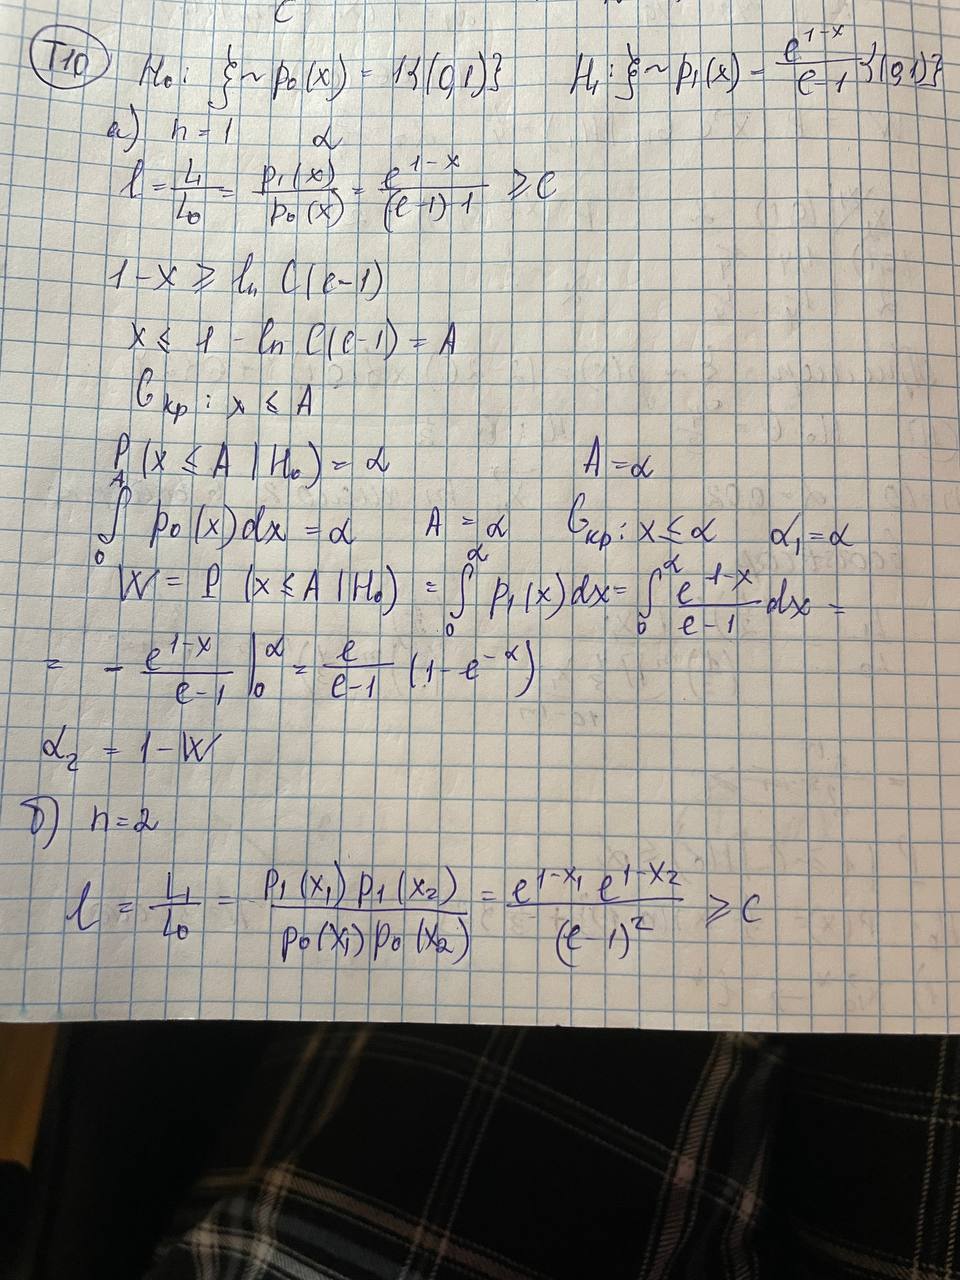 T10 H₀: ξ ~ p₀(x) = 1{(0,1)} H₁: ξ ~ p₁(x) = e^{1-x}/(e-1) {(0,1)}
а) n = 1 α
l = L₁/L₀ = p₁(x)/p₀(x) = e^{1-x}/((e-1)·1) ≥ C
1-x ≥ ln C(e-1)
x ≤ 1 - ln C(e-1) = A
G кр: x ≤ A
P(x ≤ A | H₀) = α A = α
∫₀^A p₀(x)dx = α A = α G кр: x ≤ α α₁ = α
W = P(x ≤ A | H₀) = ∫₀^α p₁(x)dx = ∫₀^α e^{1-x}/(e-1) dx =
= - e^{1-x}/(e-1) |₀^α = e/(e-1) (1-e^{-α})
α₂ = 1-W
б) n = 2
l = L₁/L₀ = p₁(x₁)p₁(x₂)/(p₀(x₁)p₀(x₂)) = e^{1-x₁} e^{1-x₂}/(e-1)² ≥ C